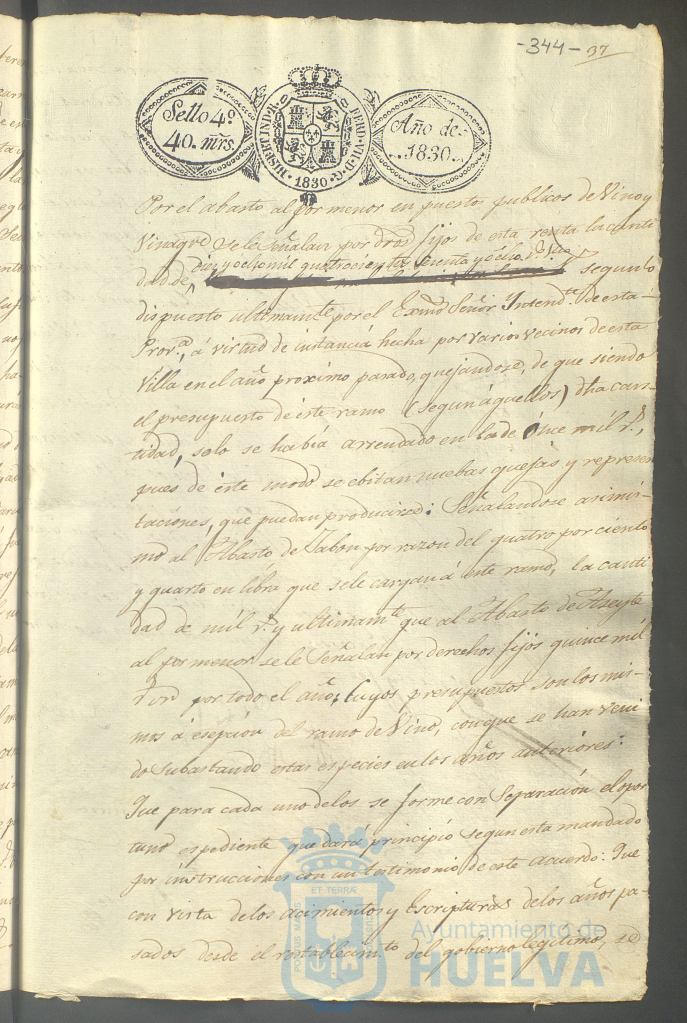 -344- 37
Sello 4º
40. mrs.
HISP. ET IND. R. FERD. VII. D. G. 1830
Año de
1830.
Por el abasto al por menor en puestos publicos de Vino y
Vinagre se le Señalan por dros fijos de esta renta la canti
dad de diez y ocho mil quatrocientos y ocho rs. Vn segun lo
dispuesto ultimamte por el Exmo Señor Intendte de esta
Prova, á virtud de instancia hecha por varios vecinos de esta
Villa en el año proximo pasado, quejandose, de que siendo
el presupuesto de este ramo (segun aquellos) dha can-
tidad, solo se habia arrendado en la de once mil rs,
pues de este modo se ebitan nuebas quejas y represen
taciones, que puedan producirse: Señalandose asimis-
mo al Abasto de Jabon por razon del quatro por ciento
y quarto en libra que se le cargan á este ramo, la canti
dad de mil rs y ultimamte que al Abasto de Aseyte
al por menor se le Señalan por derechos fijos quince mil
r vn por todo el año; Cuyos presupuestos son los mis-
mos á esepcion del ramo de Vino, con que se han veni
do Subastando estas especies en los años anteriores:
Que para cada uno de los se forme con Separación el opor
tuno espediente que dará principio segun esta mandado
por instrucciones con un testimonio de este acuerdo: Que
con vista de los acimientos y Escripturas de los años pa-
sados desde el restablecimto del gobierno legitimo, se
PORTUS MARIS ET TERRÆ CUSTODIA
Ayuntamiento de
HUELVA